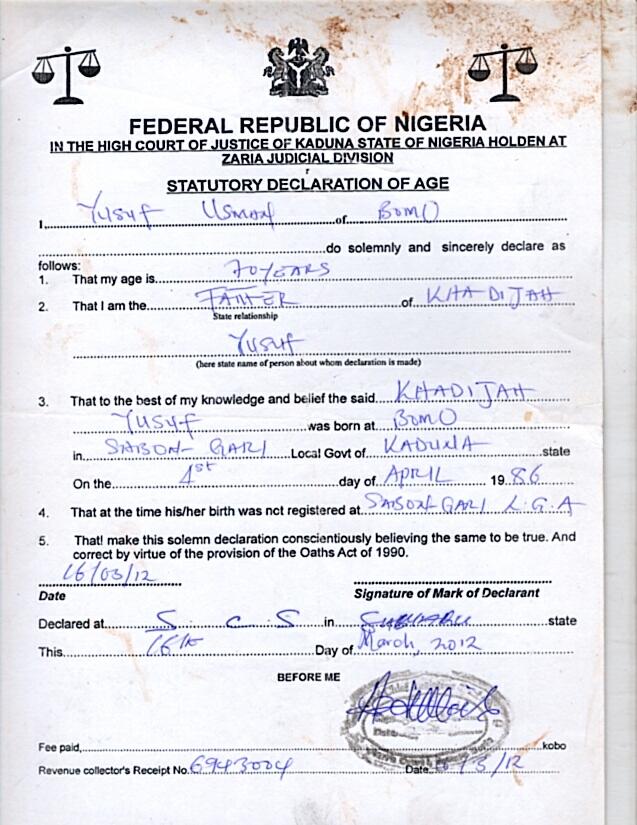 FEDERAL REPUBLIC OF NIGERIA
IN THE HIGH COURT OF JUSTICE OF KADUNA STATE OF NIGERIA HOLDEN AT
ZARIA JUDICIAL DIVISION
STATUTORY DECLARATION OF AGE
I, Yusuf Usman of Bomo
do solemnly and sincerely declare as
follows:
1. That my age is 70 YEARS
2. That I am the FATHER of KHADIJAH
State relationship
Yusuf
(here state name of person about whom declaration is made)
3. That to the best of my knowledge and belief the said KHADIJAH
YUSUF was born at BOMO
in SABON-GARI Local Govt of KADUNA state
On the 1st day of APRIL 19 86
4. That at the time his/her birth was not registered at SABON-GARI L.G.A
5. That! make this solemn declaration conscientiously believing the same to be true. And
correct by virtue of the provision of the Oaths Act of 1990.
16/03/12
Date Signature of Mark of Declarant
Declared at S C S in state
This 16th Day of March, 2012
BEFORE ME
Fee paid, kobo
Revenue collector's Receipt No. 6943004 Date /3/12